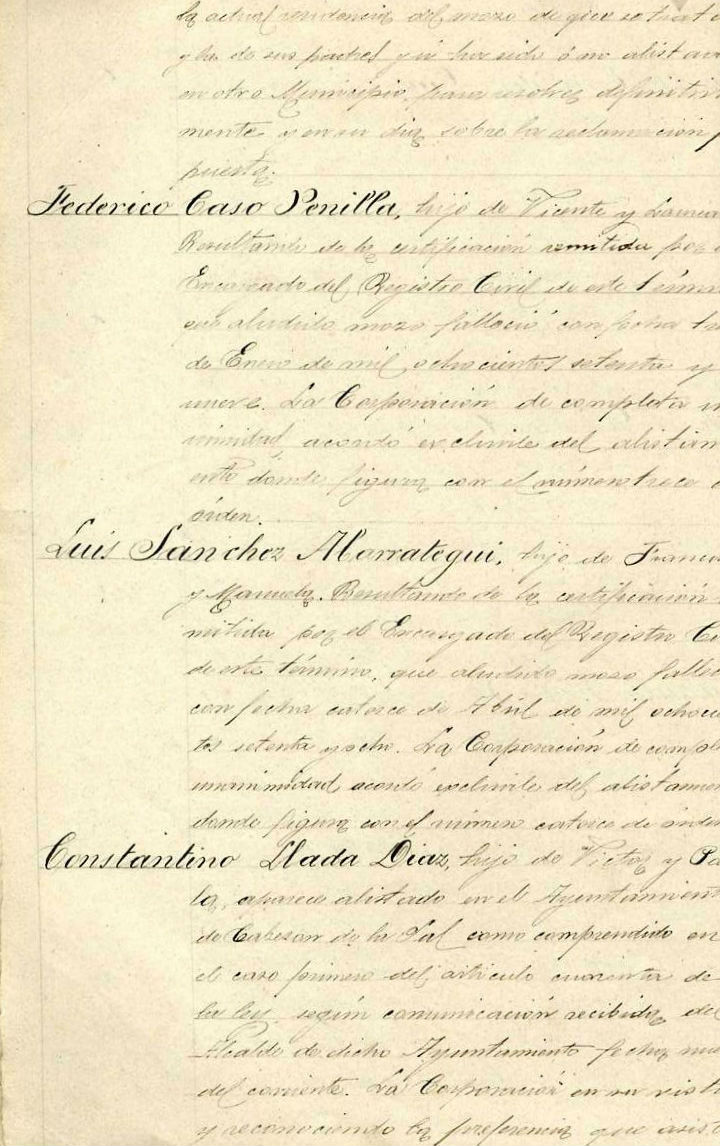 la actual residencia del mozo de que se trat
y la de sus padres y si ha sido ó no alista
en otro Municipio, para resolver definitiv
mente y en su dia sobre la reclamacion
puesta.
Federico Caso Penilla, hijo de Vicente y Laurea
Resultando de la certificación remitida por
Encargado del Registro Civil de este térm
que aludido mozo falleció con fecha
de Enero de mil ochocientos setenta y
nueve. La Corporación de completa
nimidad acordó excluirle del alistam
ento donde figura con el número trece
órden.
Luis Sánchez Marrategui, hijo de Franc
y Manuela. Resultando de la certificación
mitida por el Encargado del Registro Ci
de este término, que aludido mozo fallec
con fecha catorce de Abril de mil ochoc
tos setenta y ocho. La Corporación de compl
unanimidad acordó excluirle del alistamen
donde figura con el número catorce de órde
Constantino Llada Diaz, hijo de Victor y Pa
la, aparece alistado en el Ayuntamient
de Cabezon de la Sal como comprendido en
el caso primero del articulo cuarenta de
la ley, según comunicación recibida del
Alcalde de dicho Ayuntamiento fecha nue
del corriente. La Corporación en su vist
y reconociendo la preferencia que asist